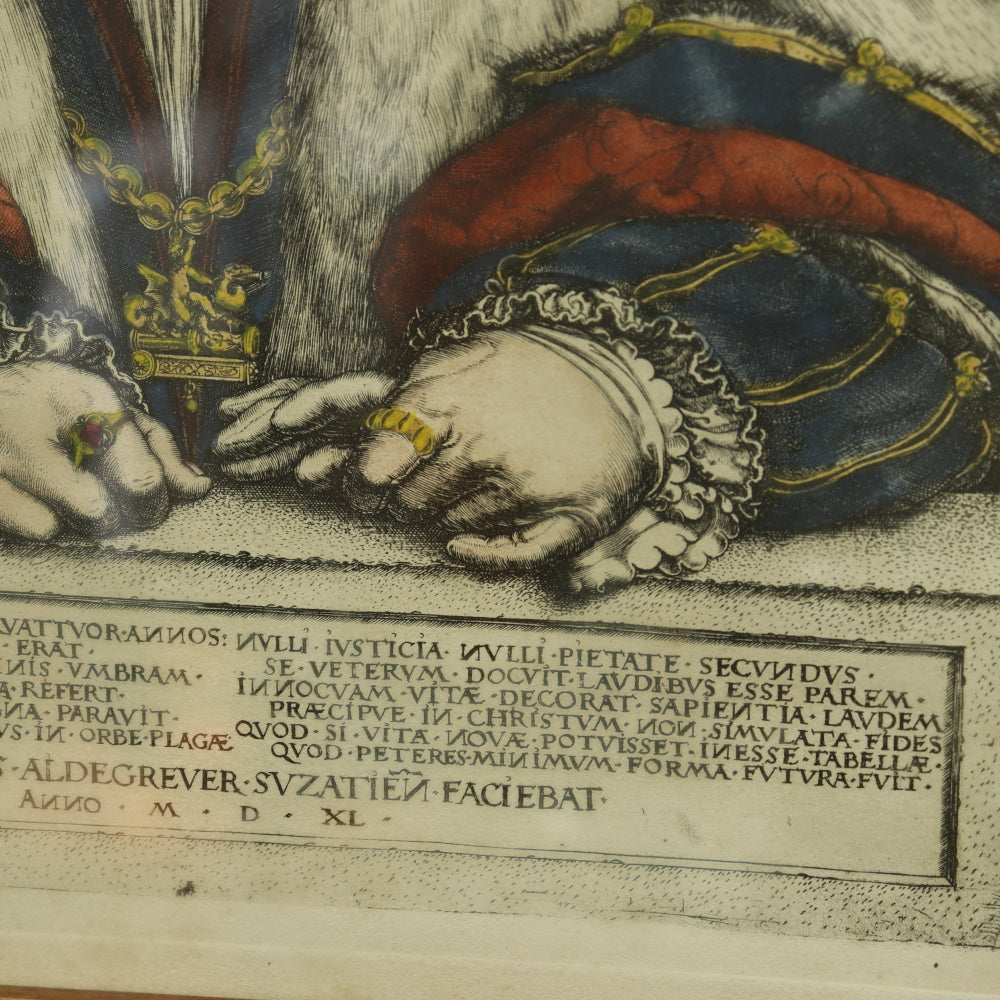 VATTVOR·ANNOS:
· ERAT ·
NIS · VMBRAM ·
A · REFERT ·
GNA · PARAVIT ·
VS · IN · ORBE · PLAGÆ
NVLLI · IVSTICIA · NVLLI · PIETATE · SECVNDVS ·
SE · VETERVM · DOCVIT · LAVDIBVS ESSE PAREM ·
INNOCVAM · VITÆ · DECORAT · SAPIENTIA · LAVDEM
PRÆCIPVE · IN · CHRISTVM · NON · SIMVLATA · FIDES
QVOD · SI · VITA · NOVÆ · POTVISSET · INESSE · TABELLÆ ·
QVOD · PETERES · MINIMVM · FORMA · FVTVRA · FVIT ·
S · ALDEGREVER · SVZATIEÑ · FACIEBAT ·
ANNO · M · D · XL ·